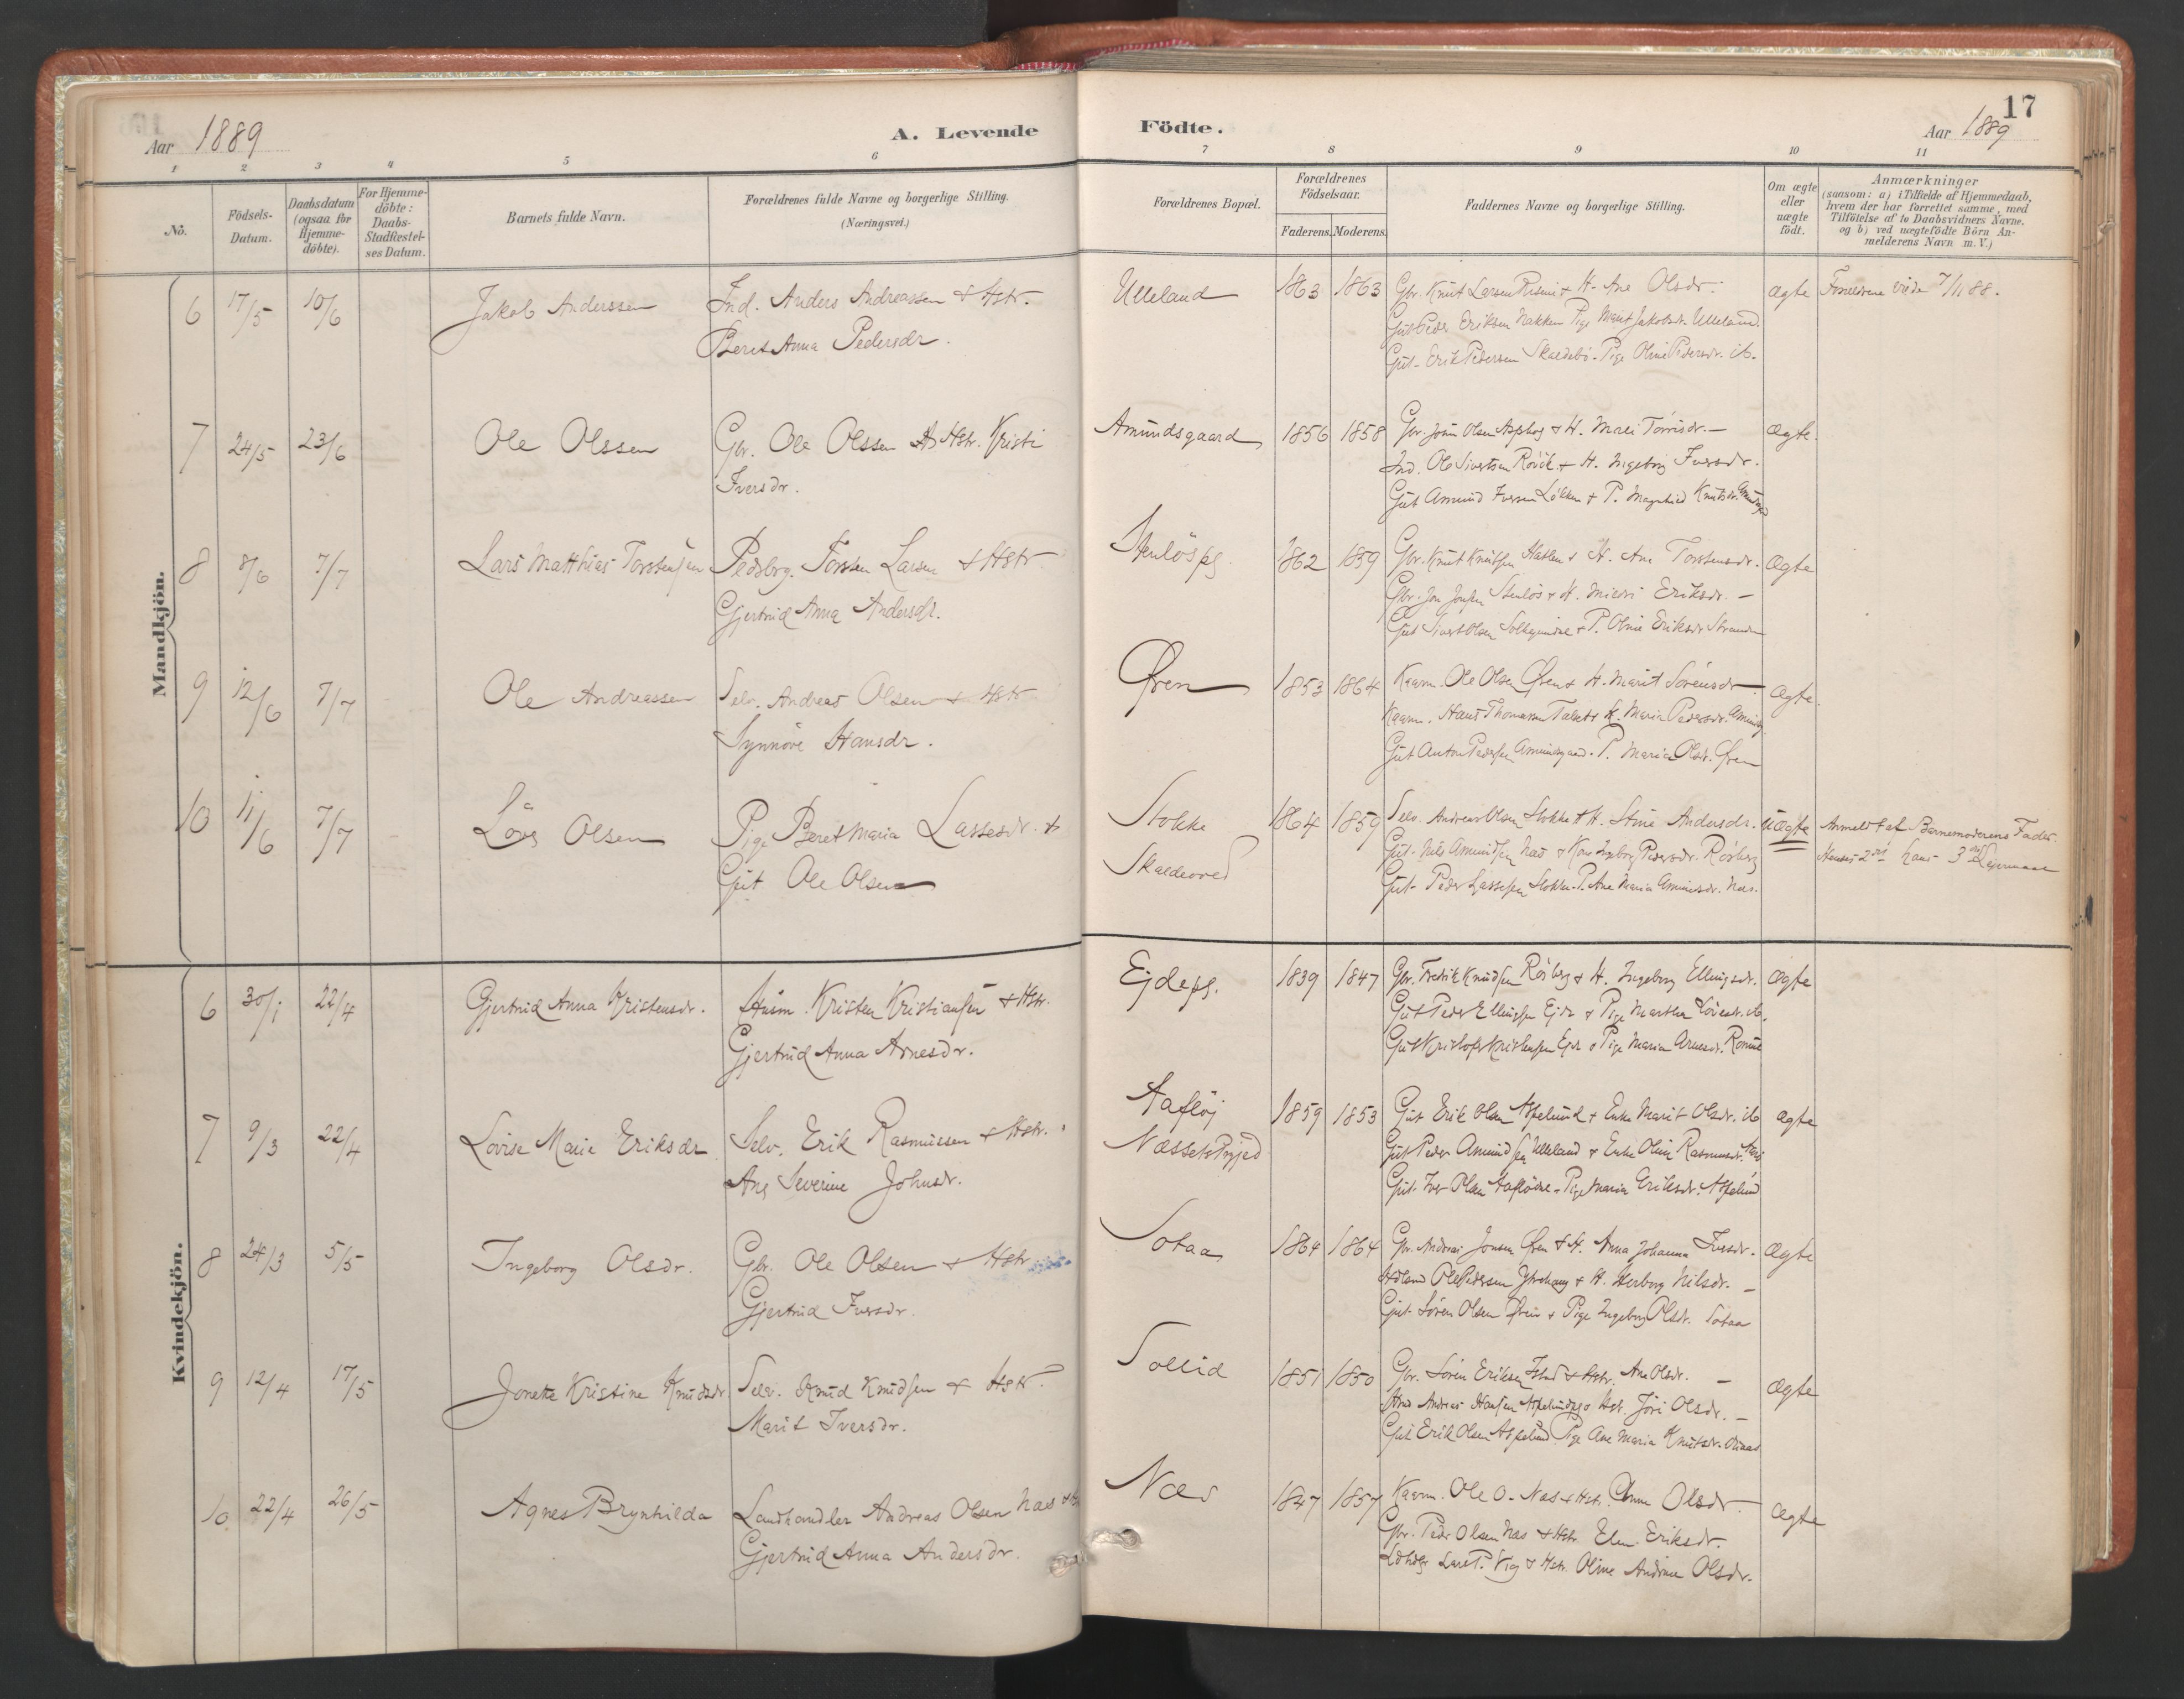 17
Aar 1889
A. Levende
Födte.
Aar 1889
1 2 3 4 5 6 7 8 9 10 11
No.
Födsels-
Datum.
Daabsdatum
(ogsaa for
Hjemme-
döbte).
For Hjemme-
döbte:
Daabs-
Stadfæstel-
ses Datum.
Barnets fulde Navn.
Forældrenes fulde Navne og borgerlige Stilling.
(Næringsvei.)
Forældrenes Bopæl.
Forældrenes
Födselsaar.
Faderens. Moderens.
Faddernes Navne og borgerlige Stilling.
Om ægte
eller
uægte
födt.
Anmærkninger
(saasom: a) i Tilfælde af Hjemmedaab,
hvem der har forrettet samme, med
Tilföielse af to Daabsvidners Navne.
og b) ved uægtefödte Börn An-
melderens Navn m. V.)
Mandkjön.
6 17/5 10/6 Jakob Anderssen Ind. Anders Andreassen & Hstr. Ulleland 1863 1863 Gbr. Knut Larsen & H. Ane Olsdr. ægte Forældrene viede 7/11 88.
Beret Anna Pedersdr. Gut Peder Eriksen Nakken Pige Marit Jakobsdr. Ulleland.
Gut Erik Pedersen Skaldebö. Pige Oline Pedersdr. ib.
7 24/5 23/6 Ole Olssen Gbr. Ole Olssen & Hstr. Kristi Amundsgaard 1856 1858 Gbr. Olsen & H. Mali Torrisdr. ægte.
Iversdr. Ind. Ole Sivertsen Rövik & H. Ingeborg Iversdr.
Gut Amund Iversen Lökken & P. Magnhild Knutsdr.
8 8/6 7/7 Lars Matthias Torstensen Torsten Larsen & Hstr. Stenlöspl. 1862 1859 Gbr. Knut Knutsen & H. Ane Torstensdr. ægte
Gjertrud Anna Andersdr. Gbr. Jon Jonsen Stenlös & H. Eriksdr.
Gut Sivert Olsen & P. Oline Eriksdr.
9 12/6 7/7 Ole Andreassen Selv. Andreas Olsen & Hstr. Øren 1853 1864 Kaarm. Ole Olsen Øren & H. Marit Sörensdr. ægte.
Synnöve Hansdr. Kaarm. Hans Thomassen & H. Maria Pedersdr.
Gut Anton Pedersen Amundsgaard. P. Maria Olsdr. Øren
10 11/6 7/7 Lars Olsen Pige Beret Maria Lassesdr. & Stokke 1864 1859 Selv. Andreas Olsen Stokke & H. Stine Andersdr. uægte Anmeldt af Barnemoderens Fader.
Gut Ole Olsen Gut Nils Amundsen Næs & Ingeborg Pedersdr. Rösberg Hendes 2det hans 3die Leiermaal
Gut Peder Lassesen Stokke. P. Ane Maria Amundsdr. Næs.
Kvindekjön.
6 30/1 22/4 Gjertrud Anna Kristensdr. Husm. Kristen Kristiansen & Hstr. Ejdepl. 1839 1847 Gbr. Fredrik Knudsen Rösberg & H. Ingeborg Ellingsdr. ægte
Gjertrud Anna Arnesdr. Gut Peder Ellingsen Ejde & Pige Martha ib.
Gut Kristofer Kristensen Ejde & Pige Maria Arnesdr.
7 9/3 22/4 Lovise Marie Eriksdr Selv. Erik Rasmussen & Hstr. 1859 1853 Gut Erik Olsen Aspelund & Enke Marit Olsdr. ib ægte
Ane Severine Johnsdr. Gut Peder Amundsen Ulleland & Enke Oline Rasmusdr.
Gut Iver Olsen & Pige Maria Eriksdr. Aspelund
8 24/3 5/5 Ingeborg Olsdr. Gbr. Ole Olsen & Hstr. Sotaa 1864 1864 Gbr. Andreas Jonsen Øren & H. Anna Johanna Iversdr. ægte
Gjertrud Iversdr. Ole Pedersen & H. Herborg Nilsdr.
Gut Sören Olsen Øren & Pige Ingeborg Olsdr. Sotaa
9 12/4 17/5 Jonette Kristine Knudsdr. Selv. Knud Knudsen & Hstr. Sollid 1851 1850 Gbr. Sören Eriksen & Hstr. Ane Olsdr. ægte
Marit Iversdr. Andreas Hansen & Hstr. Olsdr.
Gut Erik Olsen Aspelund Pige Ane Maria Knutsdr.
10 22/4 26/5 Agnes Brynhilda Landhandler Andreas Olsen Næs & Næs 1847 1857 Kaarm. Ole O. Næs & Hstr. Anne Olsdr. ægte
Gjertrud Anna Andersdr. Gbr. Peder Olsen Næs & Hstr. Elen Eriksdr.
Lars P. & Hstr. Oline Andrine Olsdr.